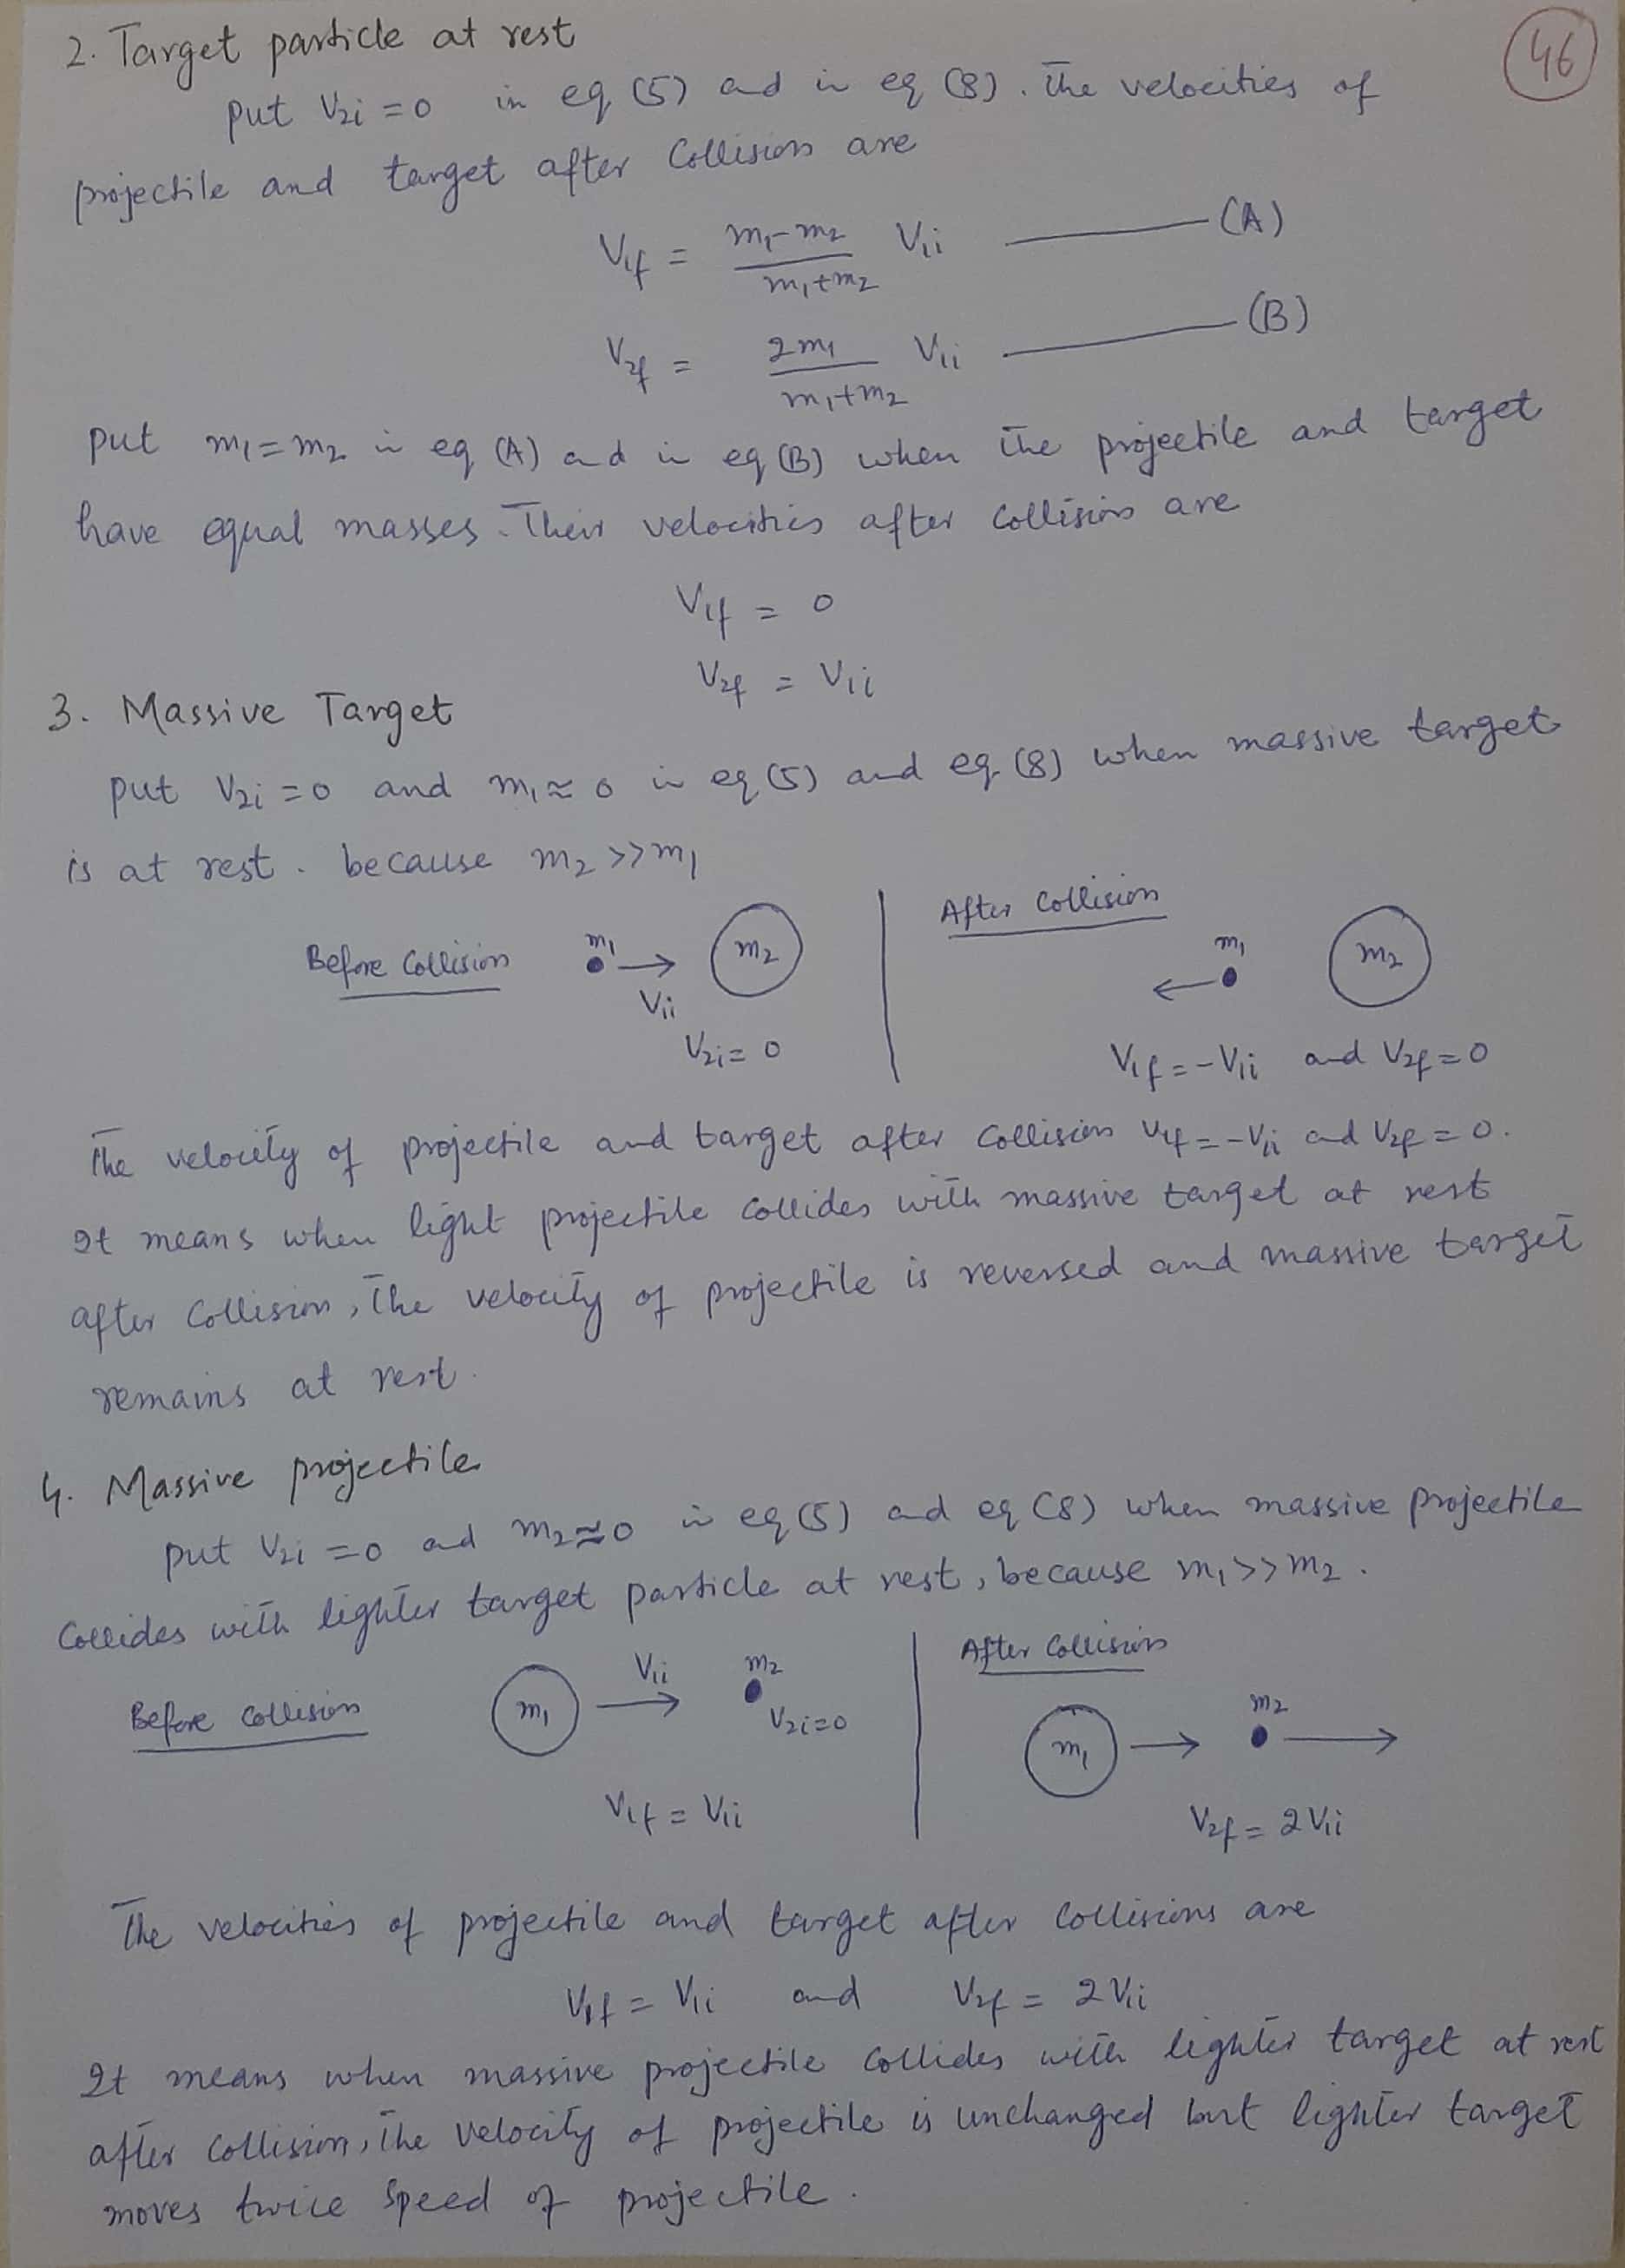 46
2. Target particle at rest
put V2i = 0 in eq (5) and in eq (8). The velocities of
projectile and target after Collision are
V1f = m1-m2 / m1+m2 V1i —— (A)
V2f = 2m1 / m1+m2 V1i —— (B)
put m1=m2 in eq (A) and in eq (B) when the projectile and target
have equal masses. Their velocities after Collision are
V1f = 0
V2f = V1i
3. Massive Target
put V2i = 0 and m1 ≈ 0 in eq (5) and eq (8) when massive target
is at rest. because m2 >> m1
Before Collision m1 → V1i m2 V2i = 0
After Collision m1 ← m2
V1f = -V1i and V2f = 0
The velocity of projectile and target after Collision V1f = -V1i and V2f = 0.
It means when light projectile collides with massive target at rest
after Collision, the velocity of projectile is reversed and massive target
remains at rest.
4. Massive projectile
put V2i = 0 and m2 ≈ 0 in eq (5) and eq (8) when massive projectile
Collides with lighter target particle at rest, because m1 >> m2.
Before Collision m1 → V1i m2 V2i = 0
V1f = V1i
After Collision m1 → m2 →
V2f = 2 V1i
The velocities of projectile and target after Collisions are
V1f = V1i and V2f = 2 V1i
It means when massive projectile Collides with lighter target at rest
after Collision, the velocity of projectile is unchanged but lighter target
moves twice speed of projectile.